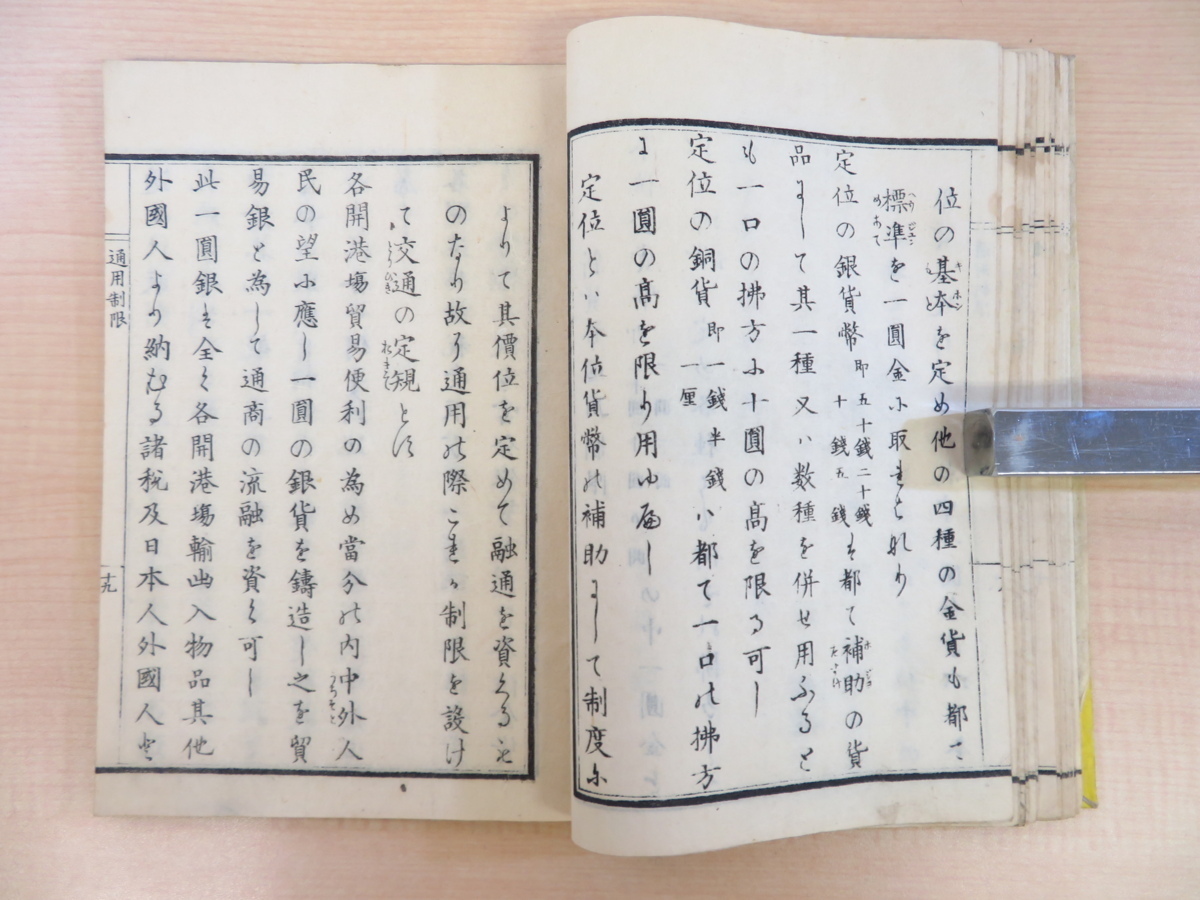 位の基本を定め他の四種の金貨も都て
標準を一圓金に取るものなり
定位の銀貨幣 即 五十錢 二十錢 十錢 五錢 は都て補助の貨
品にして其一種又ハ数種を併せ用ふると
も一口の拂方に十圓の高を限る可し
定位の銅貨 即 一錢 半錢 一厘 ハ都て一口の拂方
に一圓の高を限り用ゆべし
定位とハ本位貨幣の補助にして制度に
よりて其價位を定めて融通を資くるも
のなり故に通用の際これが制限を設け
て交通の定規とす
各開港場貿易便利の為め當分の内中外人
民の望に應し一圓の銀貨を鑄造し之を貿
易銀と為して通商の流融を資く可し
此一圓銀は全く各開港場輸出入物品其他
外國人より納むる諸税及日本人外國人と
通用制限
十九